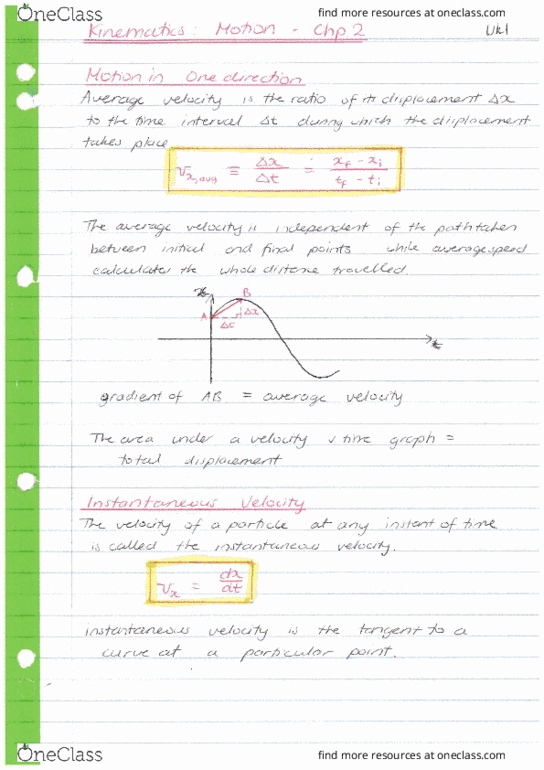 OneClass
find more resources at oneclass.com
Kinematics: Motion - Chp 2
Wk1
Motion in One direction
Average velocity is the ratio of its displacement Δx
to the time interval Δt during which the displacement
takes place
v x,avg ≡ Δx/Δt = (xf - xi)/(tf - ti)
The average velocity is independent of the path taken
between initial and final points while average speed
calculates the whole distance travelled.
x
B
A
Δx
Δt
t
gradient of AB = average velocity
The area under a velocity v time graph =
total displacement
Instantaneous Velocity
The velocity of a particle at any instant of time
is called the instantaneous velocity.
vx = dx/dt
instantaneous velocity is the tangent to a
curve at a particular point.
OneClass
find more resources at oneclass.com